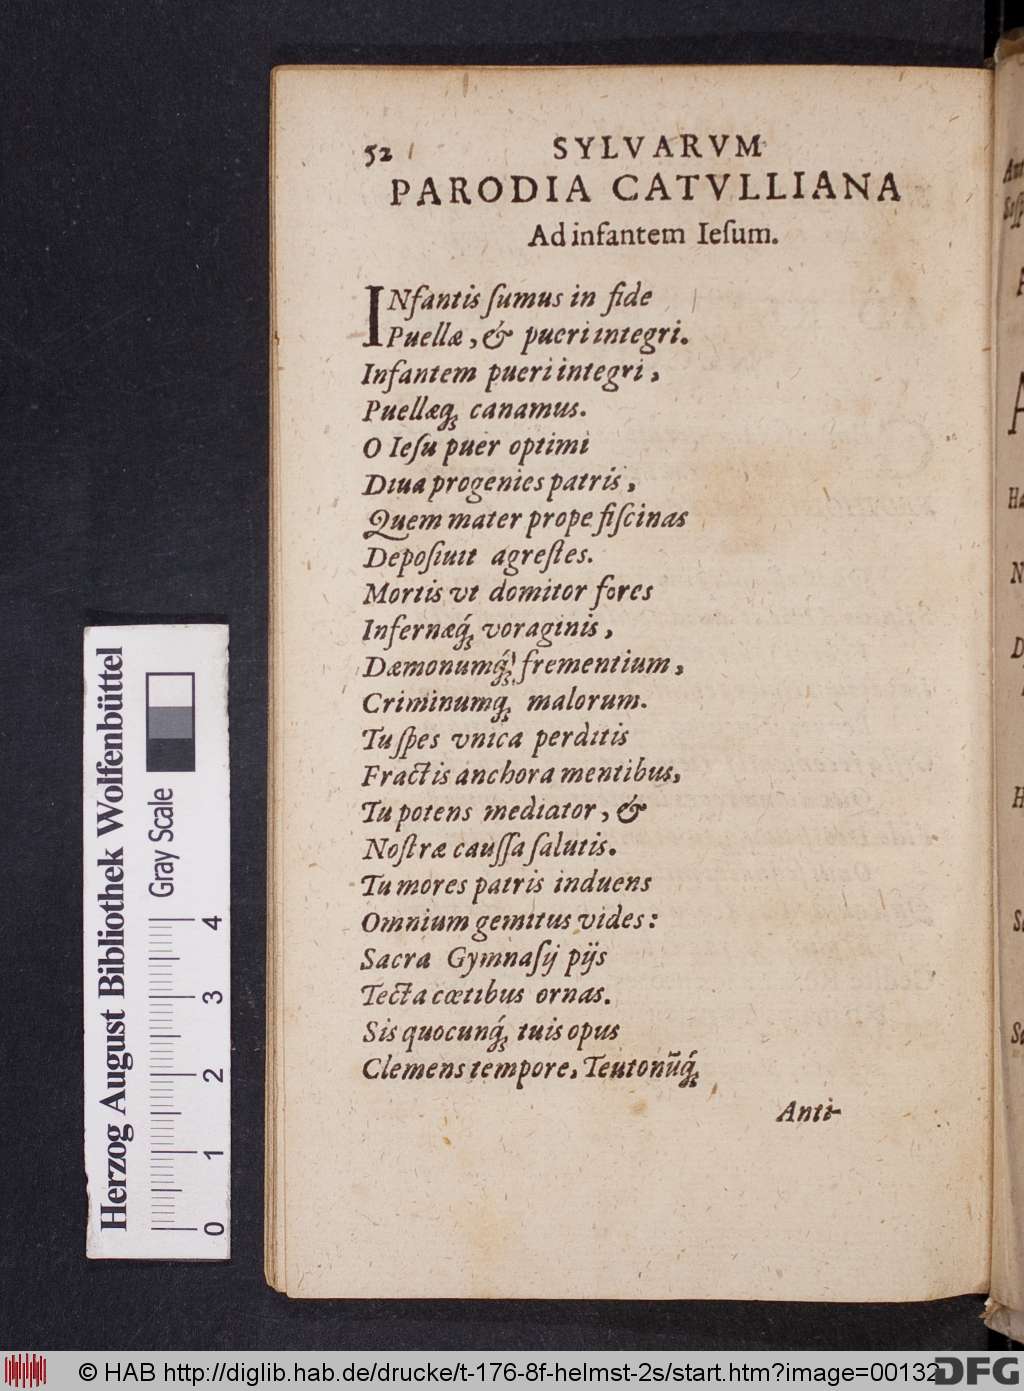 52 SYLVARVM
PARODIA CATVLLIANA
Ad infantem Ieſum.
INfantis ſumus in fide
Puellæ, & pueri integri.
Infantem pueri integri,
Puellæq́; canamus.
O Ieſu puer optimi
Diua progenies patris,
Quem mater prope fiſcinas
Depoſiuit agreſtes.
Mortis vt domitor fores
Infernæq́; voraginis,
Dæmonumq́; frementium,
Criminumq; malorum.
Tu ſpes vnica perditis
Fractis anchora mentibus,
Tu potens mediator, &
Noſtræ cauſſa ſalutis.
Tu mores patris induens
Omnium gemitus vides:
Sacra Gymnaſij pijs
Tecta cœtibus ornas.
Sis quocunq́; tuis opus
Clemens tempore, Teutonūq́;
Anti-
Herzog August Bibliothek Wolfenbüttel
Gray Scale
0 1 2 3 4
© HAB http://diglib.hab.de/drucke/t-176-8f-helmst-2s/start.htm?image=00132
DFG